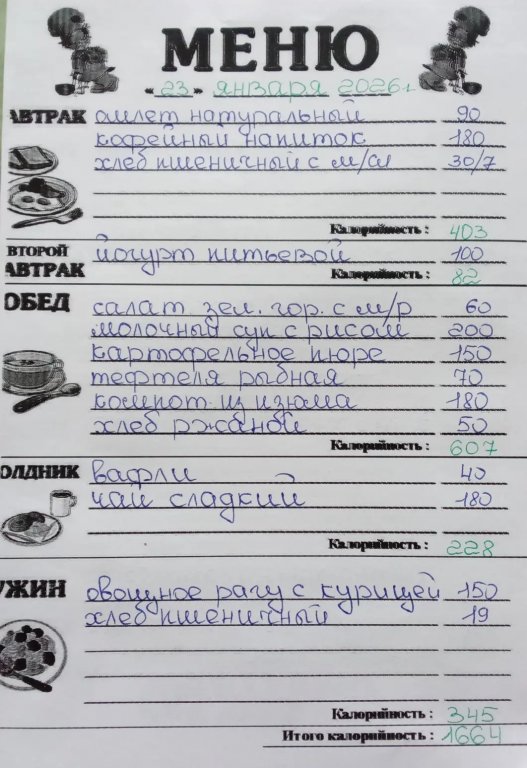 МЕНЮ
« 23 » января 2026г
АВТРАК омлет натуральный 90
кофейный напиток 180
хлеб пшеничный с м/сл 30/7
Калорийность : 403
ВТОРОЙ йогурт питьевой 100
АВТРАК Калорийность : 82
ОБЕД салат зел. гор. с м/р 60
молочный суп с рисом 200
картофельное пюре 150
тефтеля рыбная 70
компот из изюма 180
хлеб ржаной 50
Калорийность : 607
ОЛДНИК вафли 40
чай сладкий 180
Калорийность : 228
УЖИН овощное рагу с курицей 150
хлеб пшеничный 19
Калорийность : 345
Итого калорийность : 1664